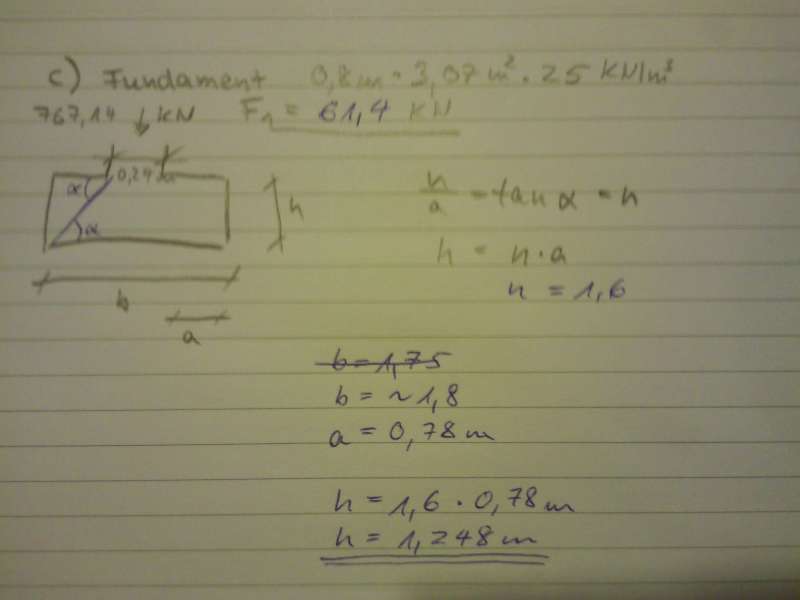 c) Fundament 0,8m · 3,07 m² · 25 KN/m³
767,14 ↓ KN F₁ = 61,4 KN
0,24 m
α
α
h
b
a
h/a = tan α = n
h = n · a
n = 1,6
b = 1,75
b = ~ 1,8
a = 0,78 m
h = 1,6 · 0,78 m
h = 1,248 m